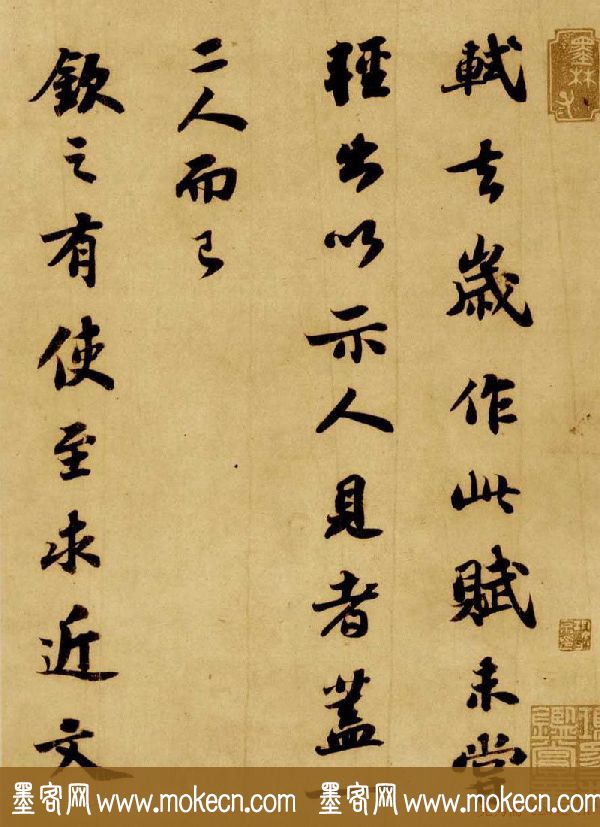 軾去歲作此賦未嘗
輕出以示人見者蓋一
二人而已
欽之有使至求近文
墨林
墨客网 www.mokecn.com 墨客网 www.mokecn.com